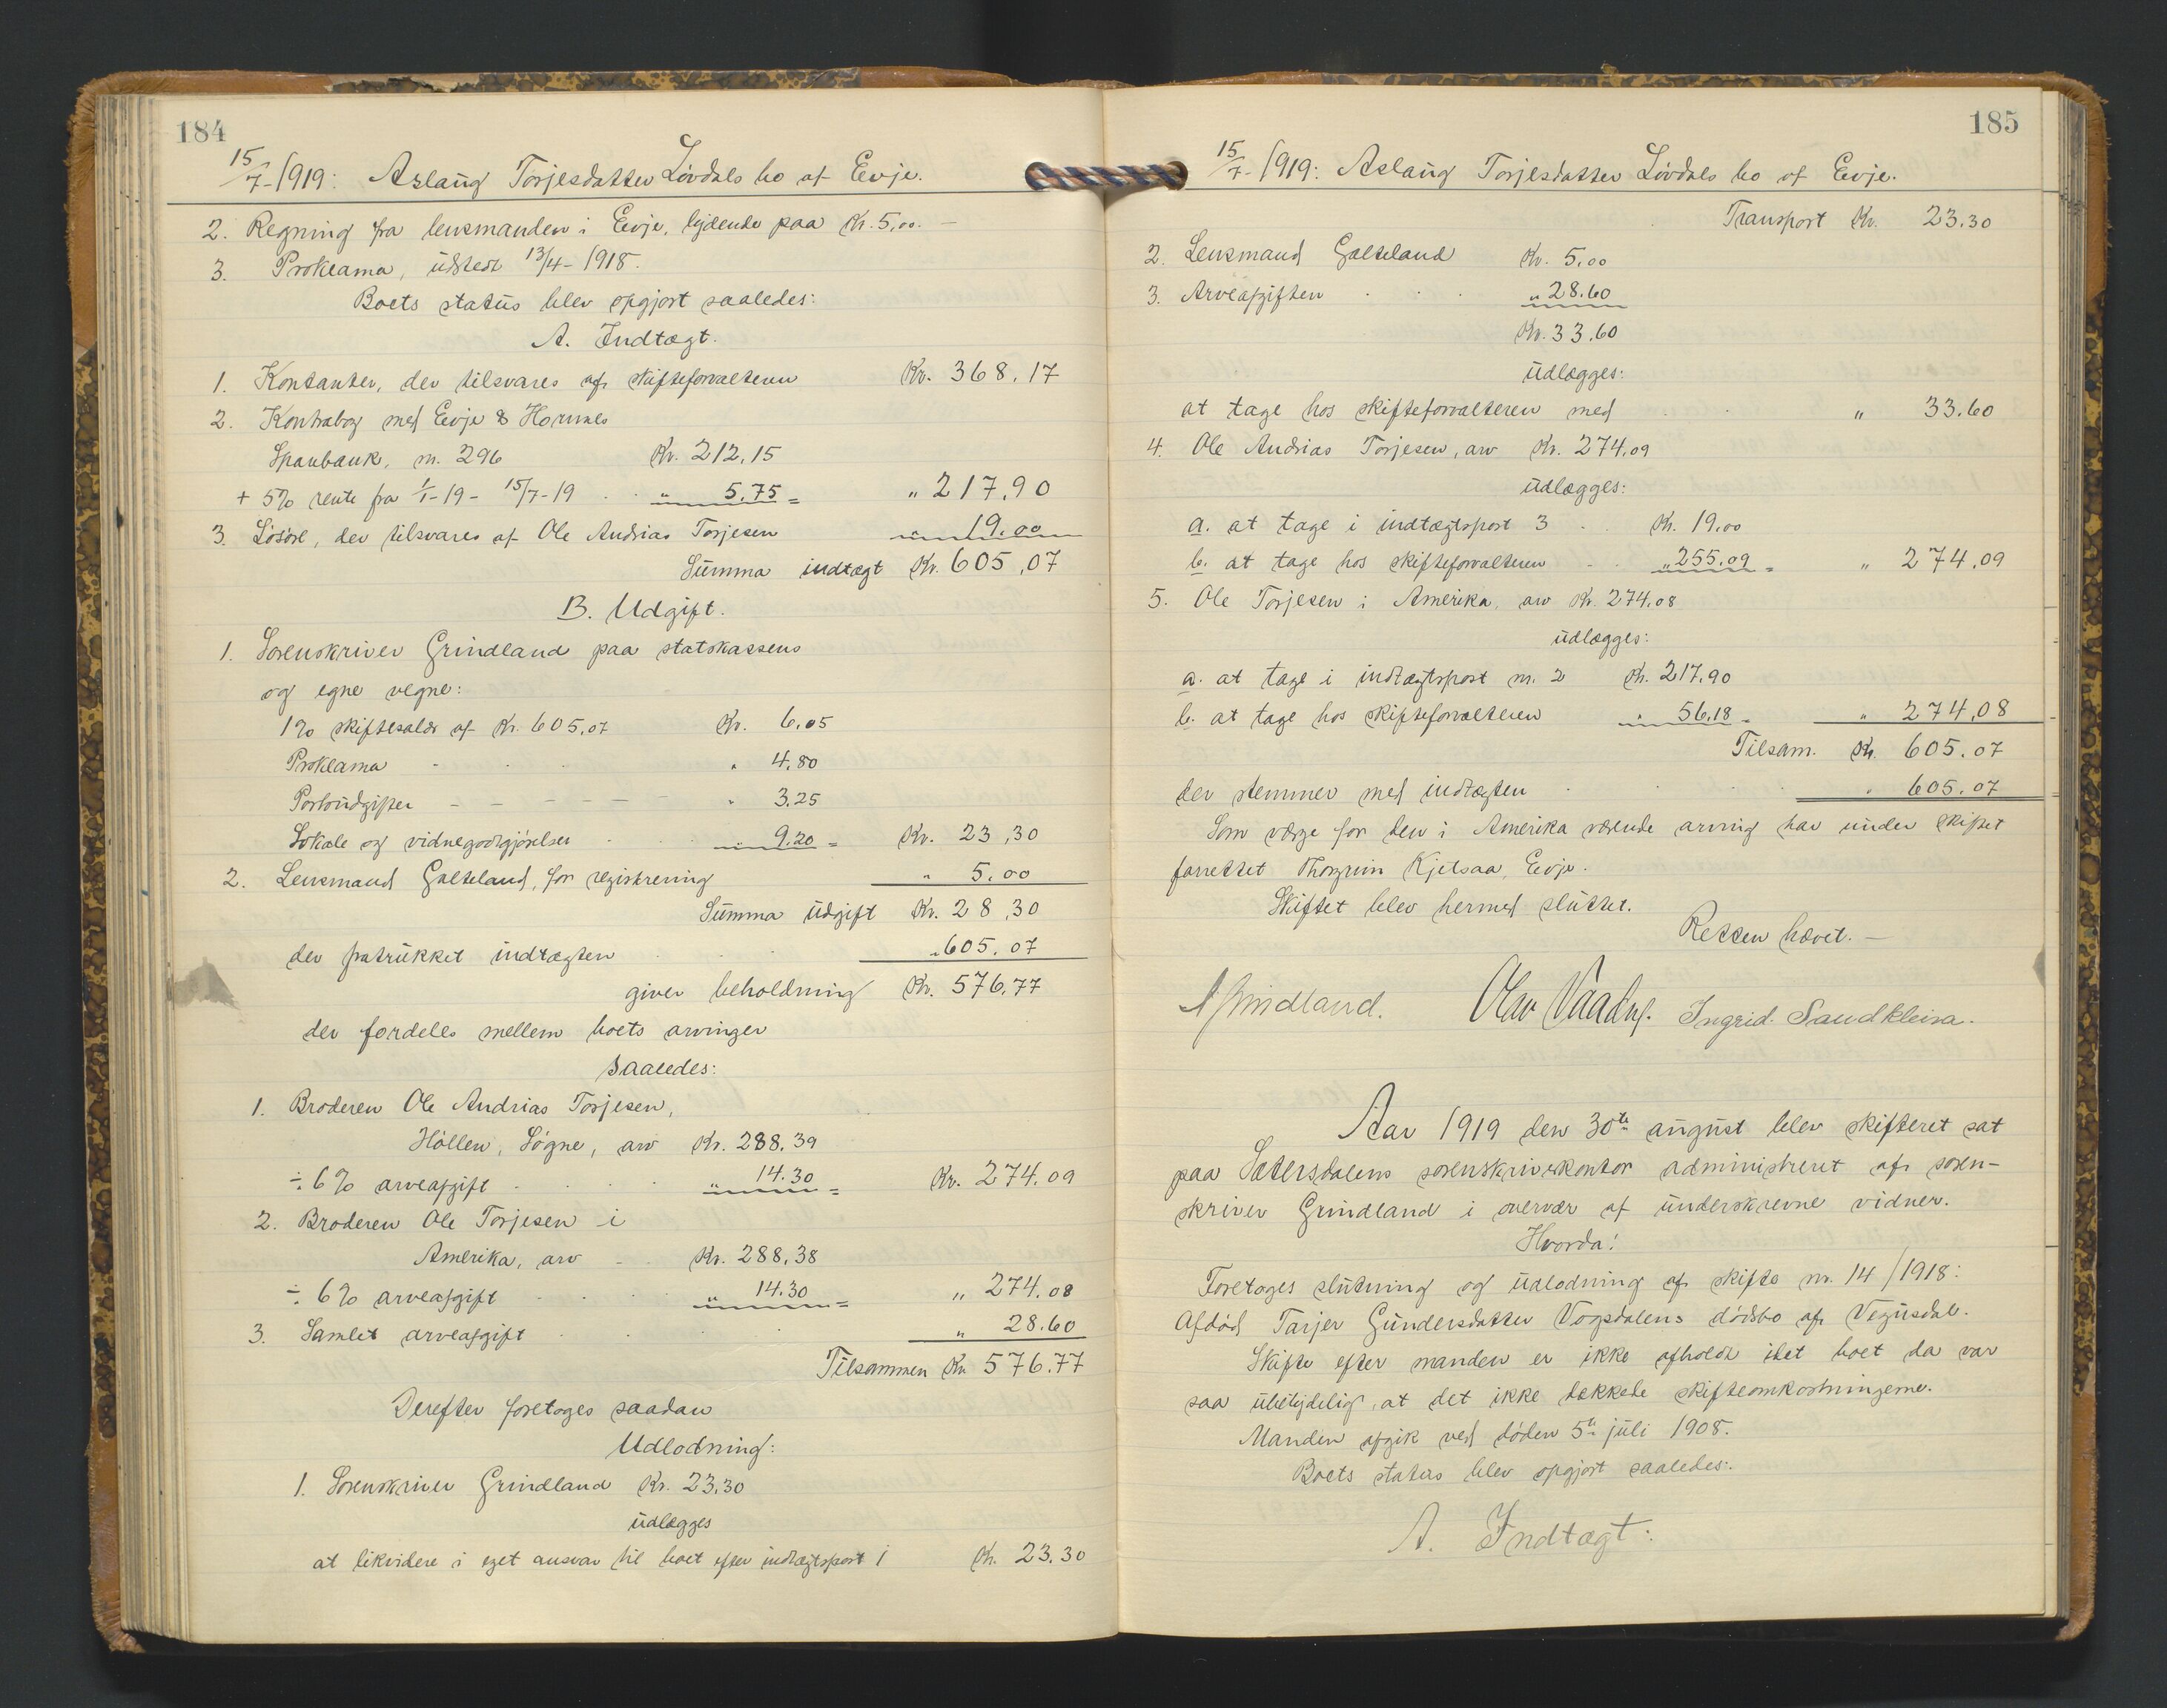 184
15/7-1919: Aslaug Torjesdatter Lövdals bo af Evje.
2. Regning fra lensmanden i Evje, lydende paa Kr. 5,00. —
3. Proklama, utstedt 13/4-1918.
Boets status blev opgjort saaledes:
A. Indtægt.
1. Kontanter, der tilsvares af skifteforvalteren Kr. 368,17
2. Kontrabog med Evje & Hornnes
Sparebank, nr. 296 Kr. 212,15
+ 5% rente fra 1/1-19 - 15/7-19 . . " 5,75 = " 217,90
3. Lösöre, der tilsvares af Ole Andrias Torjesen " 19.00
Summa indtægt Kr. 605,07
B. Udgift.
1. Sorenskriver Grindland paa statskassens
og egne vegne:
1% skiftesalær af Kr. 605,07 Kr. 6,05
Proklama - . . " 4,80
Portoudgifter - - - - - - " 3.25
Lokale og vidnegodtgjörelser . . " 9.20 = Kr. 23,30
2. Lensmand Galteland, for registrering " 5.00
Summa udgift Kr. 28,30
der fratrukket indtægten . . . " 605.07
giver beholdning Kr. 576,77
der fordeles mellem boets arvinger
saaledes:
1. Broderen Ole Andrias Torjesen,
Höllen, Sögne, arv Kr. 288.39
÷ 6% arveafgift . . . . " 14.30 = Kr. 274.09
2. Broderen Ole Torjesen i
Amerika, arv - . Kr. 288,38
÷ 6% arveafgift . . . . " 14.30 = " 274.08
3. Samlet arveafgift . . . . " 28.60
Tilsammen Kr. 576.77
Derefter foretoges saadan
Udlodning:
1. Sorenskriver Grindland Kr. 23,30
udlægges
at likvidere i eget ansvar til boet efter indtægtspost 1 Kr. 23.30
185
15/7-1919: Aslaug Torjesdatter Lövdals bo af Evje.
Transport Kr. 23.30
2. Lensmand Galteland Kr. 5,00
3. Arveafgiften . . . " 28.60
Kr. 33.60
udlægges:
at tage hos skifteforvalteren med . . " 33.60
4. Ole Andrias Torjesen, arv Kr. 274,09
udlægges:
a. at tage i indtægtspost 3 . . Kr. 19,00
b. at tage hos skifteforvalteren - . " 255.09 = " 274,09
5. Ole Torjesen i Amerika, arv Kr. 274.08
udlægges:
a. at tage i indtægtspost nr. 2 Kr. 217.90
b. at tage hos skifteforvalteren " 56.18 = " 274,08
Tilsam. Kr. 605.07
der stemmer med indtægten . . . . " 605.07
Som værge for den i Amerika værende arving har under skiftet
forrettet Thorgrim Kjetsaa, Evje.
Skiftet blev hermed sluttet.
Retten hævet. —
A Grindland. Olav Ingrid Sandkleiva.
Aar 1919 den 30te august blev skifteret sat
paa Sætersdalens sorenskriverkontor administreret af soren-
skriver Grindland i overvær af underskrevne vidner.
Hvorda:
Foretoges slutning og udlodning af skifte nr. 14/1918:
Afdöd Tarjer Gundersdatter Vogsdalens dödsbo af Vegusdal.
Skifte efter manden er ikke afholdt idet boet da var
saa ubetydelig, at det ikke dækkede skifteomkostningerne.
Manden afgik ved döden 5te juli 1908.
Boets status blev opgjort saaledes:
A. Indtægt: